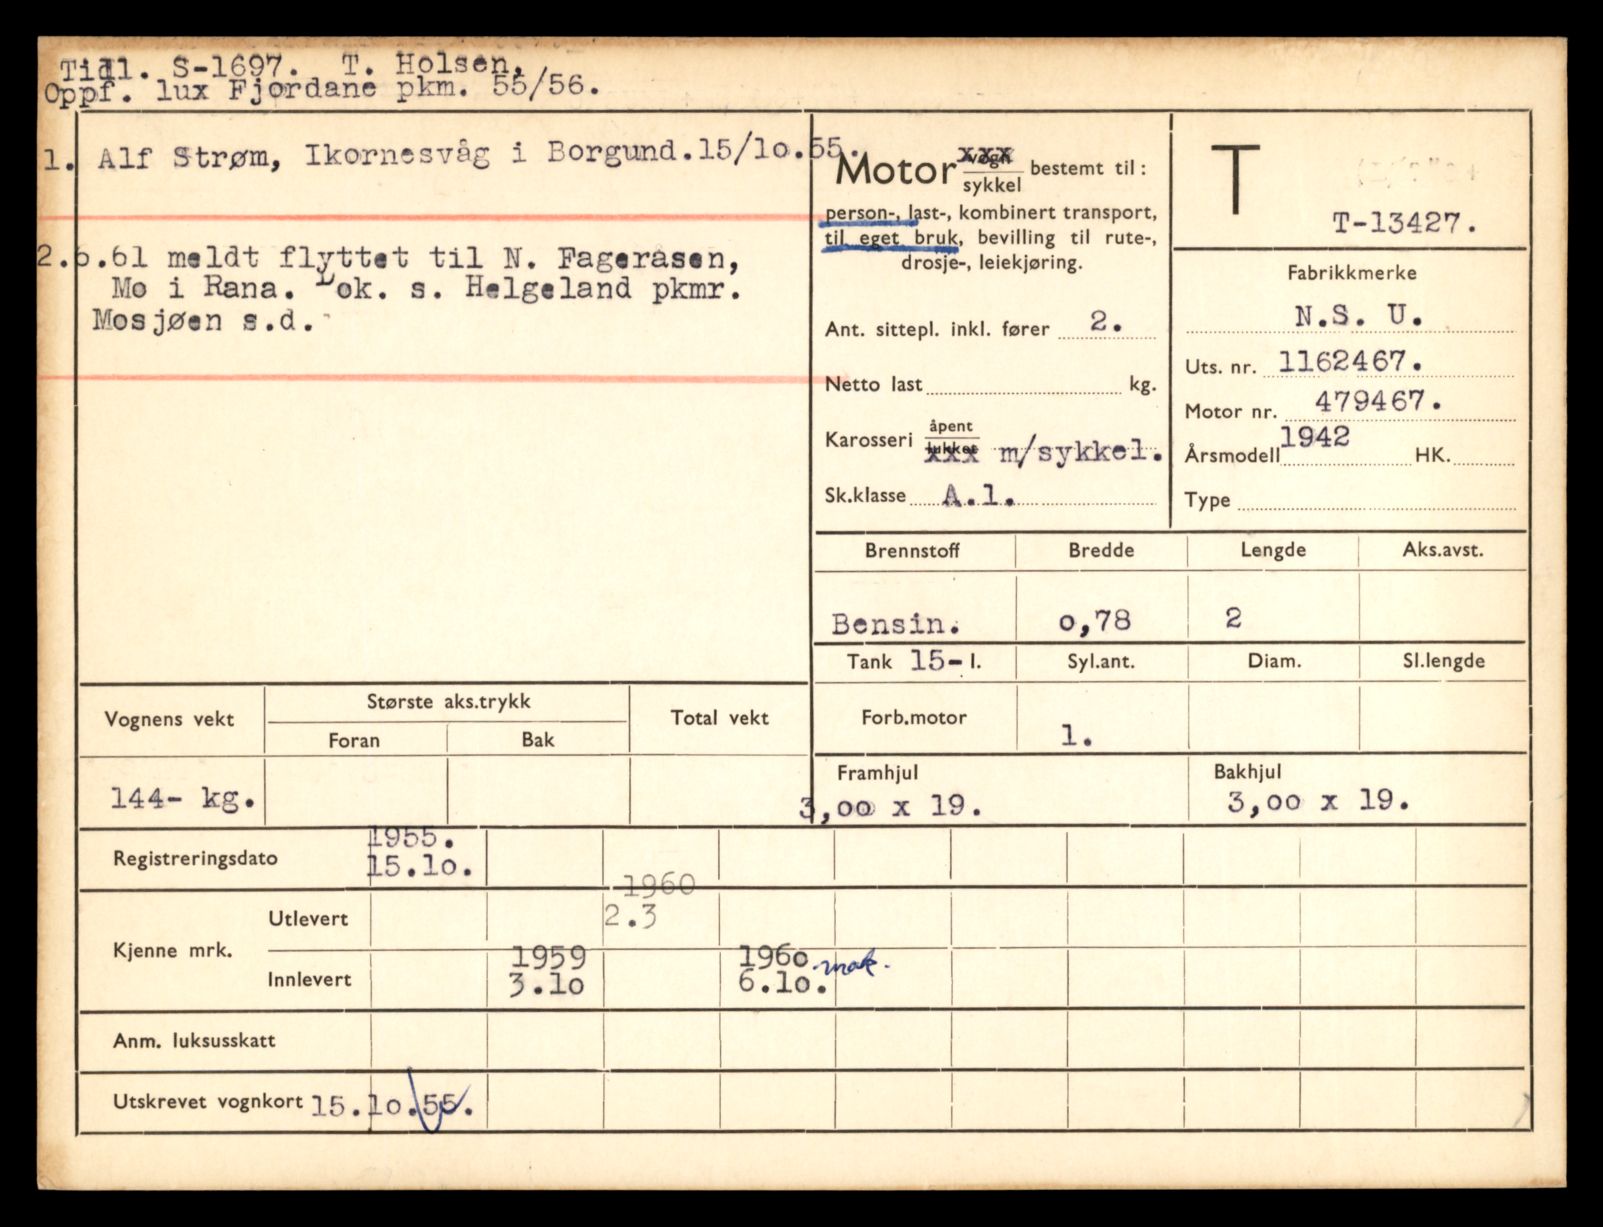 Tidl. S-1697. T. Holsen,
Oppf. lux Fjordane pkm. 55/56.
1. Alf Strøm, Ikornesvåg i Borgund. 15/10.55.
2.6.61 meldt flyttet til N. Fageråsen,
Mo i Rana. Dok. s. Helgeland pkmr.
Mosjøen s.d.
Motor vogn xxx
sykkel bestemt til:
person-, last-, kombinert transport,
til eget bruk, bevilling til rute-,
drosje-, leiekjøring.
Ant. sittepl. inkl. fører 2.
Netto last kg.
Karosseri åpent
lukket xxx m/sykkel.
Sk.klasse A.1.
T
T-13427.
Fabrikkmerke
N.S. U.
Uts. nr. 1162467.
Motor nr. 479467.
Årsmodell 1942 HK.
Type
Brennstoff Bredde Lengde Aks.avst.
Bensin. 0,78 2
Tank 15- l. Syl.ant. Diam. Sl.lengde
Forb.motor 1.
Framhjul Bakhjul
3,00 x 19. 3,00 x 19.
Vognens vekt Største aks.trykk Total vekt
Foran Bak
144- kg.
Registreringsdato 1955.
15.10.
Kjenne mrk.
Utlevert 1960
2.3
Innlevert 1959 1960. mak.
3.10 6.10.
Anm. luksusskatt
Utskrevet vognkort 15.10.55.